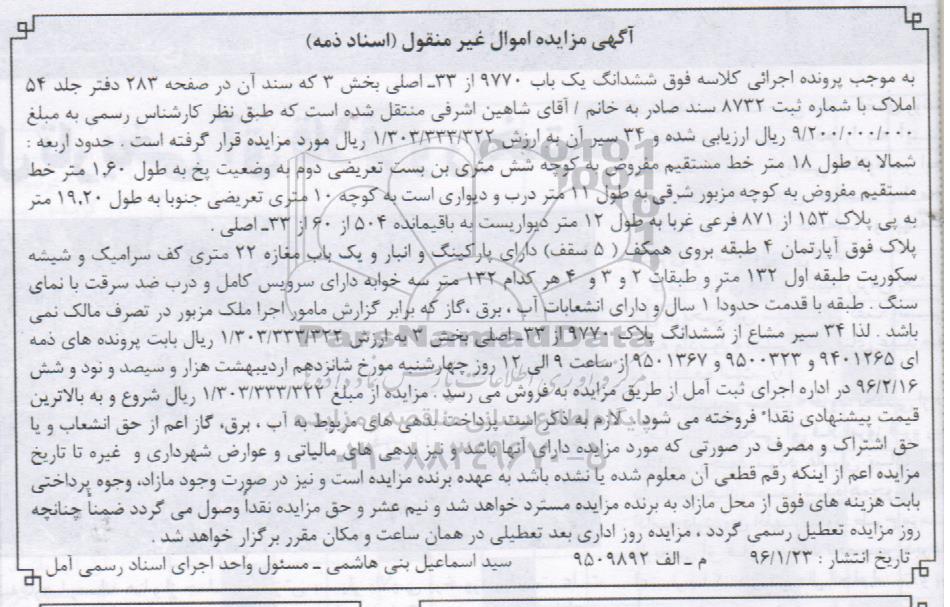 آگهی مزایده اموال غیر منقول (اسناد ذمه)
به موجب پرونده اجرائی کلاسه فوق ششدانگ یک باب ۹۷۷۰ از ۳۳ـ اصلی بخش ۳ که سند آن در صفحه ۲۸۳ دفتر جلد ۵۴
املاک با شماره ثبت ۸۷۳۲ سند صادر به خانم / آقای شاهین اشرفی منتقل شده است که طبق نظر کارشناس رسمی به مبلغ
۹/۲۰۰/۰۰۰/۰۰۰ ریال ارزیابی شده و ۳۴ سیر آن به ارزش ۱/۳۰۳/۳۳۳/۳۲۲ ریال مورد مزایده قرار گرفته است . حدود اربعه :
شمالا به طول ۱۸ متر خط مستقیم مفروض به کوچه شش متری بن بست تعریضی دوم به وضعیت پخ به طول ۱,۶۰ متر خط
مستقیم مفروض به کوچه مزبور شرقی به طول ۱۱ متر درب و دیواری است به کوچه ۱۰ متری تعریضی جنوبا به طول ۱۹,۲۰ متر
به پی پلاک ۱۵۳ از ۸۷۱ فرعی غربا به طول ۱۲ متر دیواریست به باقیمانده ۵۰۴ از ۶۰ از ۳۳ـ اصلی .
پلاک فوق آپارتمان ۴ طبقه بروی همکف ( ۵ سقف) دارای پارکینگ و انبار و یک باب مغازه ۲۲ متری کف سرامیک و شیشه
سکوریت طبقه اول ۱۳۲ متر و طبقات ۲ و ۳ و ۴ هر کدام ۱۳۲ متر سه خوابه دارای سرویس کامل و درب ضد سرقت با نمای
سنگ . طبقه با قدمت حدوداً ۱ سال و دارای انشعابات آب ، برق ،گاز که برابر گزارش مامور اجرا ملک مزبور در تصرف مالک نمی
باشد . لذا ۳۴ سیر مشاع از ششدانگ پلاک ۹۷۷۰ از ۳۳ـ اصلی بخش ۳ به ارزش ۱/۳۰۳/۳۳۳/۳۲۲ ریال بابت پرونده های ذمه
ای ۹۴۰۱۲۶۵ و ۹۵۰۰۳۲۳ و ۹۵۰۱۳۶۷ از ساعت ۹ الی ۱۲ روز چهارشنبه مورخ شانزدهم اردیبهشت هزار و سیصد و نود و شش
۹۶/۲/۱۶ در اداره اجرای ثبت آمل از طریق مزایده به فروش می رسد . مزایده از مبلغ ۱/۳۰۳/۳۳۳/۳۲۲ ریال شروع و به بالاترین
قیمت پیشنهادی نقداً فروخته می شود. لازم به ذکر است پرداخت بدهی های مربوط به آب ، برق، گاز اعم از حق انشعاب و یا
حق اشتراک و مصرف در صورتی که مورد مزایده دارای آنها باشد و نیز بدهی های مالیاتی و عوارض شهرداری و غیره تا تاریخ
مزایده اعم از اینکه رقم قطعی آن معلوم شده یا نشده باشد به عهده برنده مزایده است و نیز در صورت وجود مازاد، وجوه پرداختی
بابت هزینه های فوق از محل مازاد به برنده مزایده مسترد خواهد شد و نیم عشر و حق مزایده نقداً وصول می گردد ضمناً چنانچه
روز مزایده تعطیل رسمی گردد ، مزایده روز اداری بعد تعطیلی در همان ساعت و مکان مقرر برگزار خواهد شد .
تاریخ انتشار : ۹۶/۱/۲۳ م ـ الف ۹۵۰۹۸۹۲ سید اسماعیل بنی هاشمی ـ مسئول واحد اجرای اسناد رسمی آمل